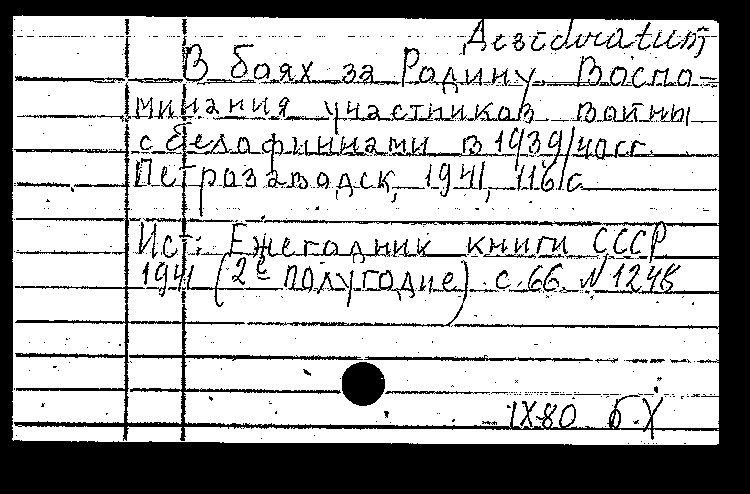 Desideratum
В боях за Родину. Воспо-
минания участников войны
с белофиннами в 1939/40 гг.
Петрозаводск, 1941, 116 с
Ист: Ежегодник книги СССР
1941 (2е полугодие) с. 66. N 1248
IX-80 б.Х